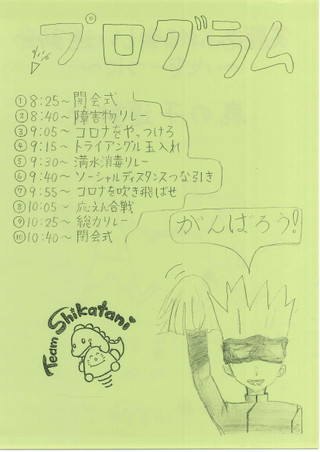 プログラム
① 8:25〜 開会式
② 8:40〜 障害物リレー
③ 9:05〜 コロナをやっつけろ
④ 9:15〜 トライアングル玉入れ
⑤ 9:30〜 満水消毒リレー
⑥ 9:40〜 ソーシャルディスタンスつな引き
⑦ 9:55〜 コロナを吹き飛ばせ
⑧ 10:05〜 応えん合戦
⑨ 10:25〜 総力リレー
⑩ 10:40〜 閉会式
がんばろう!
Team Shikatani